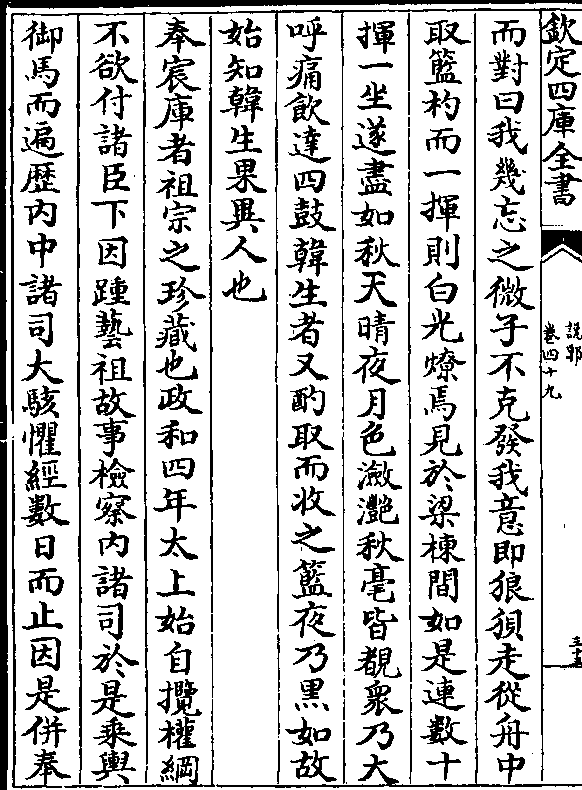 欽定四庫全書
說郛
卷四十九
而對曰我幾忘之微子不克發我意即狼狽走從舟中
取籃杓而一揮則白光燎焉見於梁棟間如是連數十
揮一坐遂盡如秋天晴夜月色瀲灩秋毫皆覩衆乃大
呼痛飲達四鼓韓生者又酌取而收之籃夜乃黒如故
始知韓生果異人也
奉宸庫者祖宗之珍藏也政和四年太上始自攬權綱
不欲付諸臣下因踵藝祖故事檢察內諸司於是乘輿
御馬而遍歴內中諸司大駭懼經數日而止因是併奉